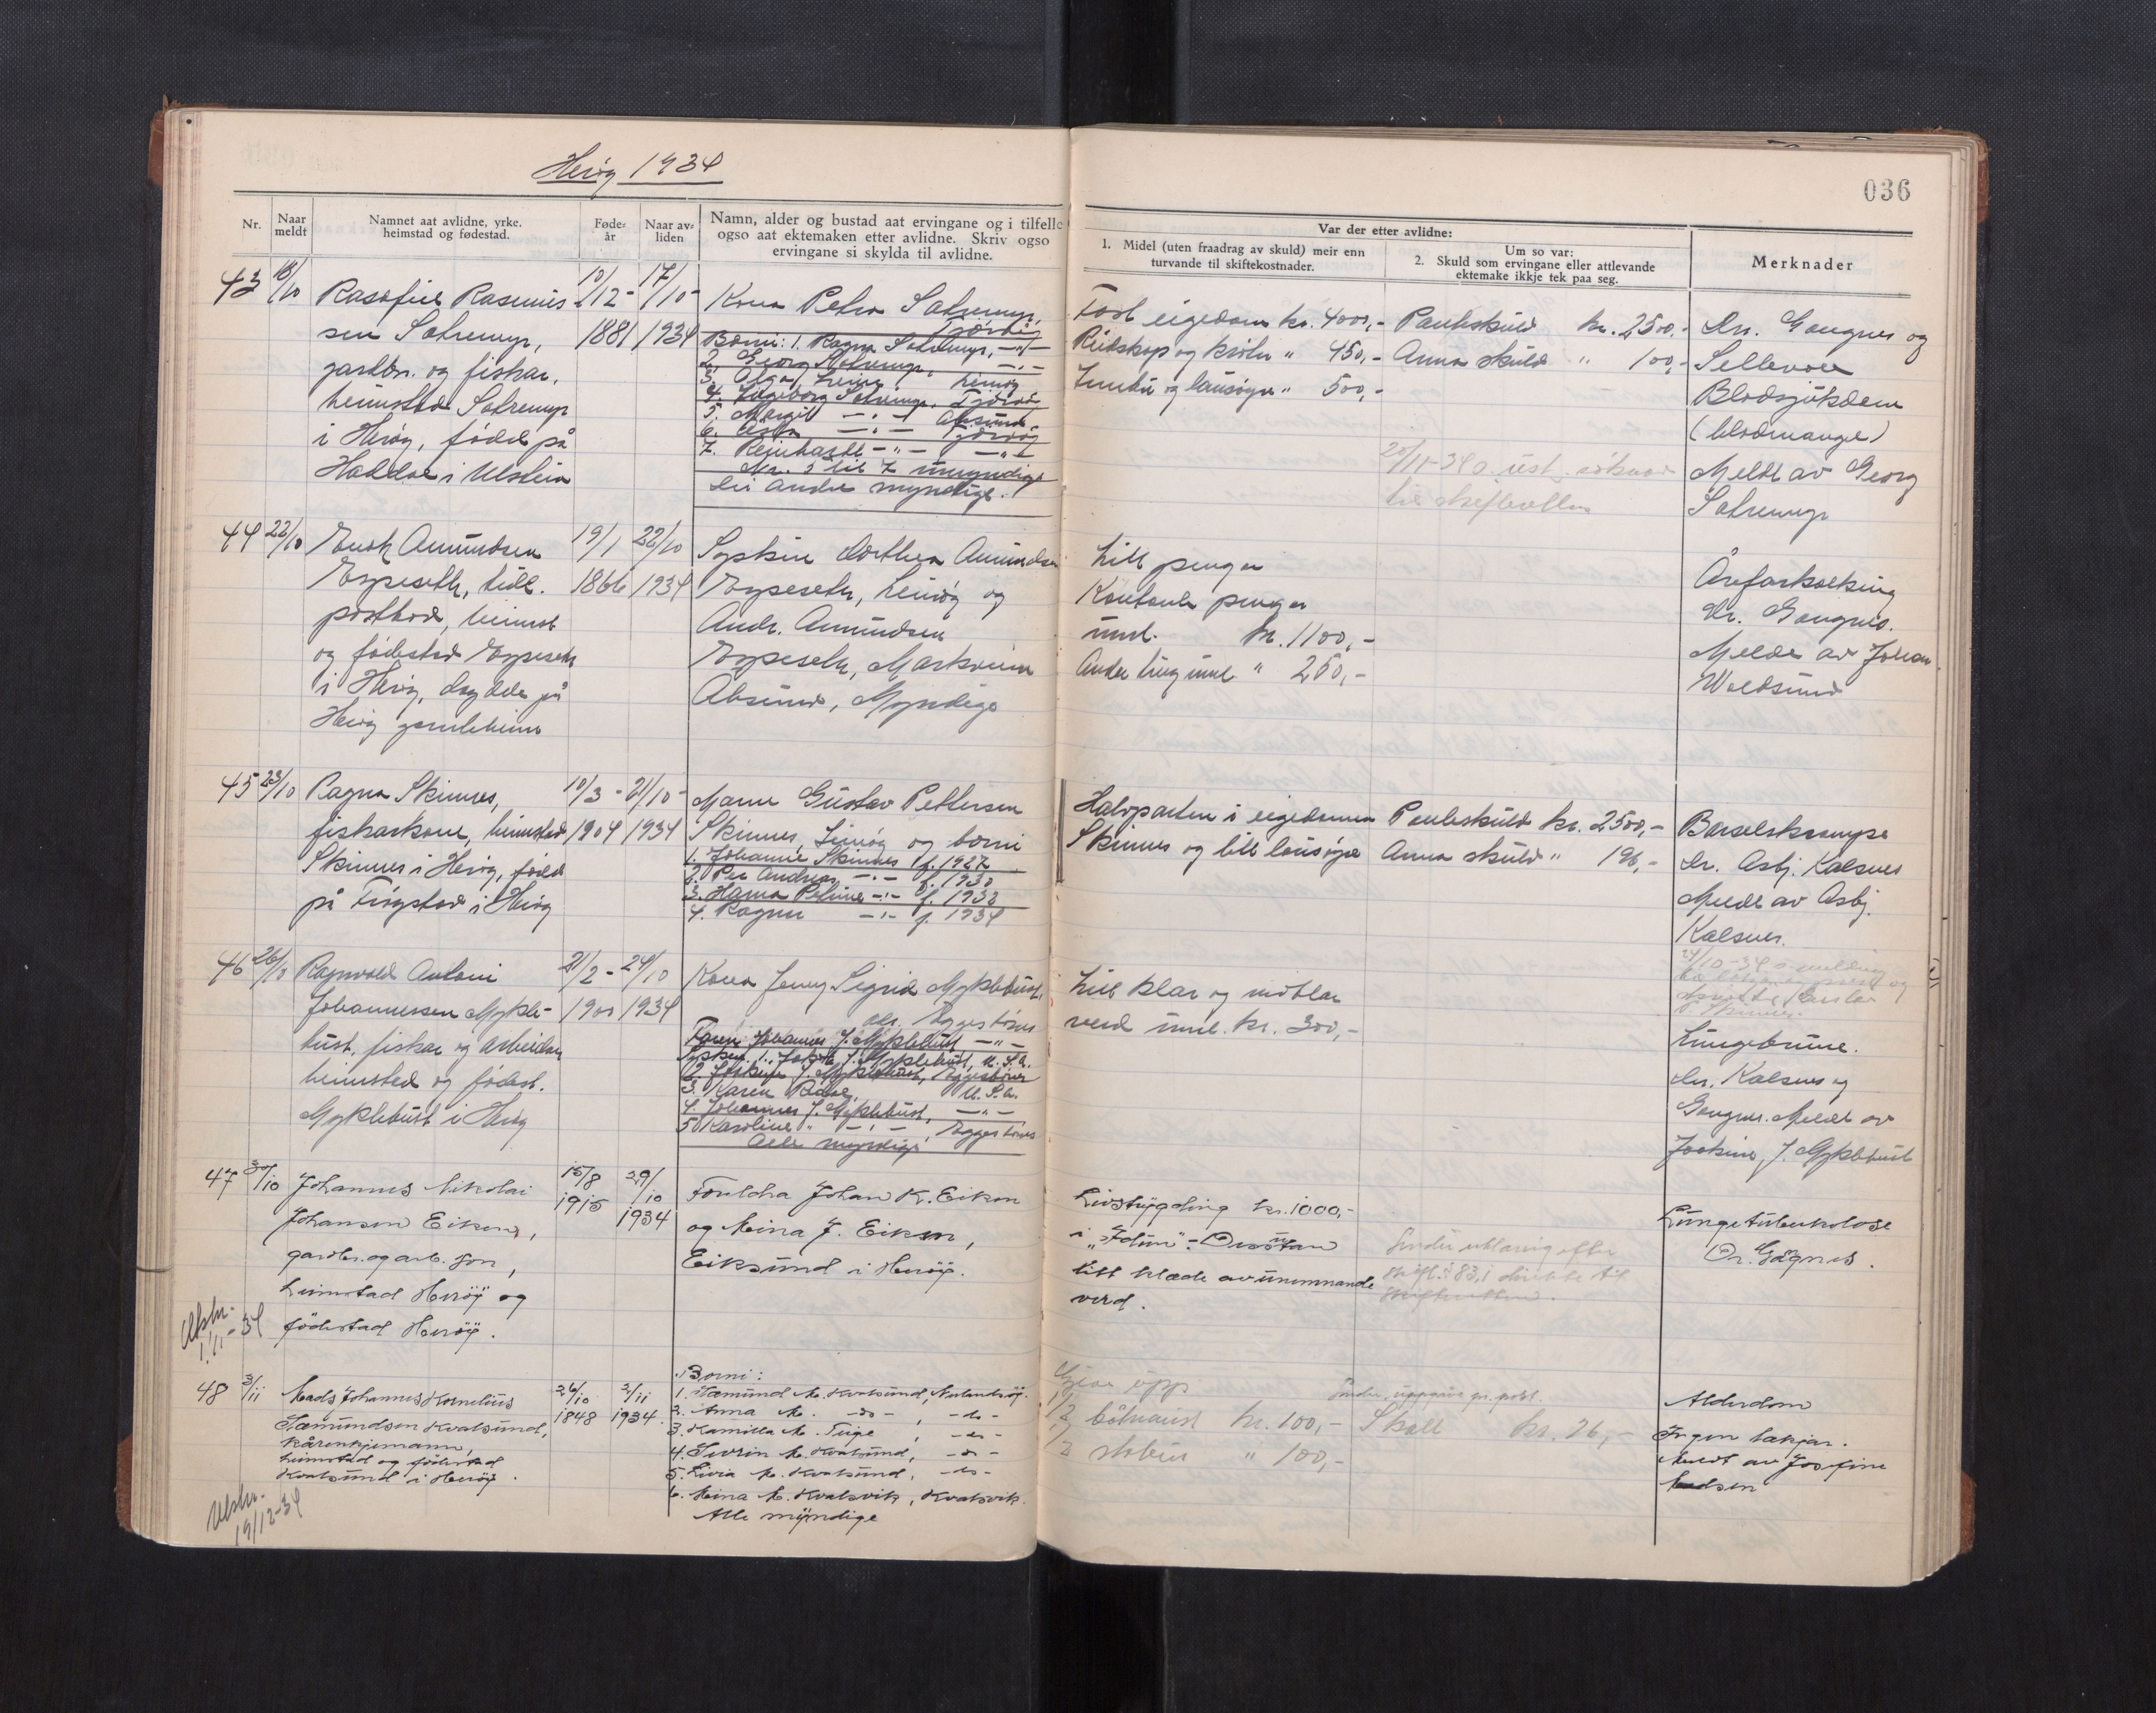 Herøy 1934
036
Nr.
Naar meldt
Namnet aat avlidne, yrke.
heimstad og fødestad.
Føde-
år
Naar av-
liden
Namn, alder og bustad aat ervingane og i tilfelle
ogso aat ektemaken etter avlidne. Skriv ogso
ervingane si skylda til avlidne.
Var der etter avlidne:
1. Midel (uten fraadrag av skuld) meir enn
turvande til skiftekostnader.
Um so var:
2. Skuld som ervingane eller attlevande
ektemake ikkje tek paa seg.
Merknader
43 18/10 Rasmus-
sen Sætremyr,
gardbr. og fiskar,
heimstad Sætremyr
i Herøy, fødd på
Haddal i Ulstein
10/12-
1881
17/10-
1934
Kona Petra Sætremyr,
Borni: 1. Ragna Sætremyr, -"-
2. Georg Sætremyr, -"-
3. Olga Leine, Leinøy
4. Ingeborg Sætremyr,
5. Margit -"- Ålesund
6. Åsta -"-
7. Reinhardt -"- -"-
Nr. 5 til 7 umyndige
dei andre myndige.
Fast eigedom kr. 4000,-
Reidskap og krøter " 450,-
Innbu og lausøyre " 500,-
Panteskuld kr. 2500,-
Anna skuld " 100,-
til skifteretten
Dr. Gangnes og
Sellevold
Blodsjukdom
(blodmangel)
Meldt av Georg
Sætremyr
44 22/10 Enok Amundsen
Espeseth, tidl.
postbod, heimst.
og fødestad Espeseth
i Herøy, døydde på
Herøy gamleheim
19/1
1866
22/10
1934
Syskin Dorthea Amundsen
Espeseth, Leinøy og
Andr. Amundsen
Espeseth,
Ålesund, Myndige
Litt pengar
Kontante pengar
uml. kr. 1100,-
Andre ting uml " 250,-
Åreforkalking
Dr. Gangnes.
Meldt av Johan
Voldsund
45 23/10 Ragna Skinnes,
fiskarkone, heimstad
Skinnes i Herøy, fødd
på Frøystad i Herøy
10/3-
1904
21/10-
1934
Mann Gustav Pettersen
Skinnes, Leinøy og borni
1. Johannie Skinnes f. 1927
2. Per Andreas -"- f. 1930
3. Hanna Petrine -"- f. 1933
4. Ragna -"- f. 1934
Halvparten i eigedomen
Skinnes og litt lausøyre
Panteskuld kr. 2500,-
Anna skuld " 196,-
Barselskrampe
Dr. Asbj. Kalsnes
Meldt av Asbj.
Kalsnes.
46 26/10 Ragnvald Antoni
Johannessen Mykle-
bust, fiskar og arbeidar
heimstad og fødest.
Myklebust i Herøy
21/2-
1900
24/10
1934
Kona Jenny Sigrid Myklebust,
Eggesbønes
Faren Johannes J. Myklebust -"-
Syskin 1. Jakob J. Myklebust, U.S.A.
2. Joakim J. Myklebust, Eggesbønes
3. Karen U.S.A.
4. Johannes J. Myklebust, -"-
5. Karoline " -"-, Eggesbønes
Alle myndige
Litt klær og møblar
verd uml. kr. 300,-
Lungebrune.
Dr. Kalsnes og
Gangnes. Meldt av
Joakim J. Myklebust
47 30/10 Johannes Nikolai
Johansen Eiksun,
gardbr. og arb. son,
heimstad Herøy og
fødestad Herøy.
15/8
1915
29/10
1934
Foreldra Johan K. Eiksun
og Meina J. Eiksun,
Eiksund i Herøy.
Livstrygding kr. 1000,-
i "Idun".
litt klæde av unemnande
verd.
Lungetuberkolose
Dr. Gagnes.
1/11-34
48 3/11 Mads Johannes Kornelius
Sæmundsen Kvalsund,
kårenkjemann,
heimstad og fødestad
Kvalsund i Herøy.
26/10
1848
2/11
1934
Borni:
1. Sæmund M. Kvalsund, Nerlandsøy.
2. Anna M. -do-, -do-
3. Kamilla M. Teige, -do-
4. Severin M. Kvalsund, -do-
5. Livia M. Kvalsund, -do-
6. Meina M. Kvalsvik, Kvalsvik.
Alle myndige
1/2 båtnaust kr. 100,-
1/2 stobus " 100,-
Skatt kr. 26,-
Alderdom
Ingen lækjar.
Meldt av Josefine
Madsen
19/12-34